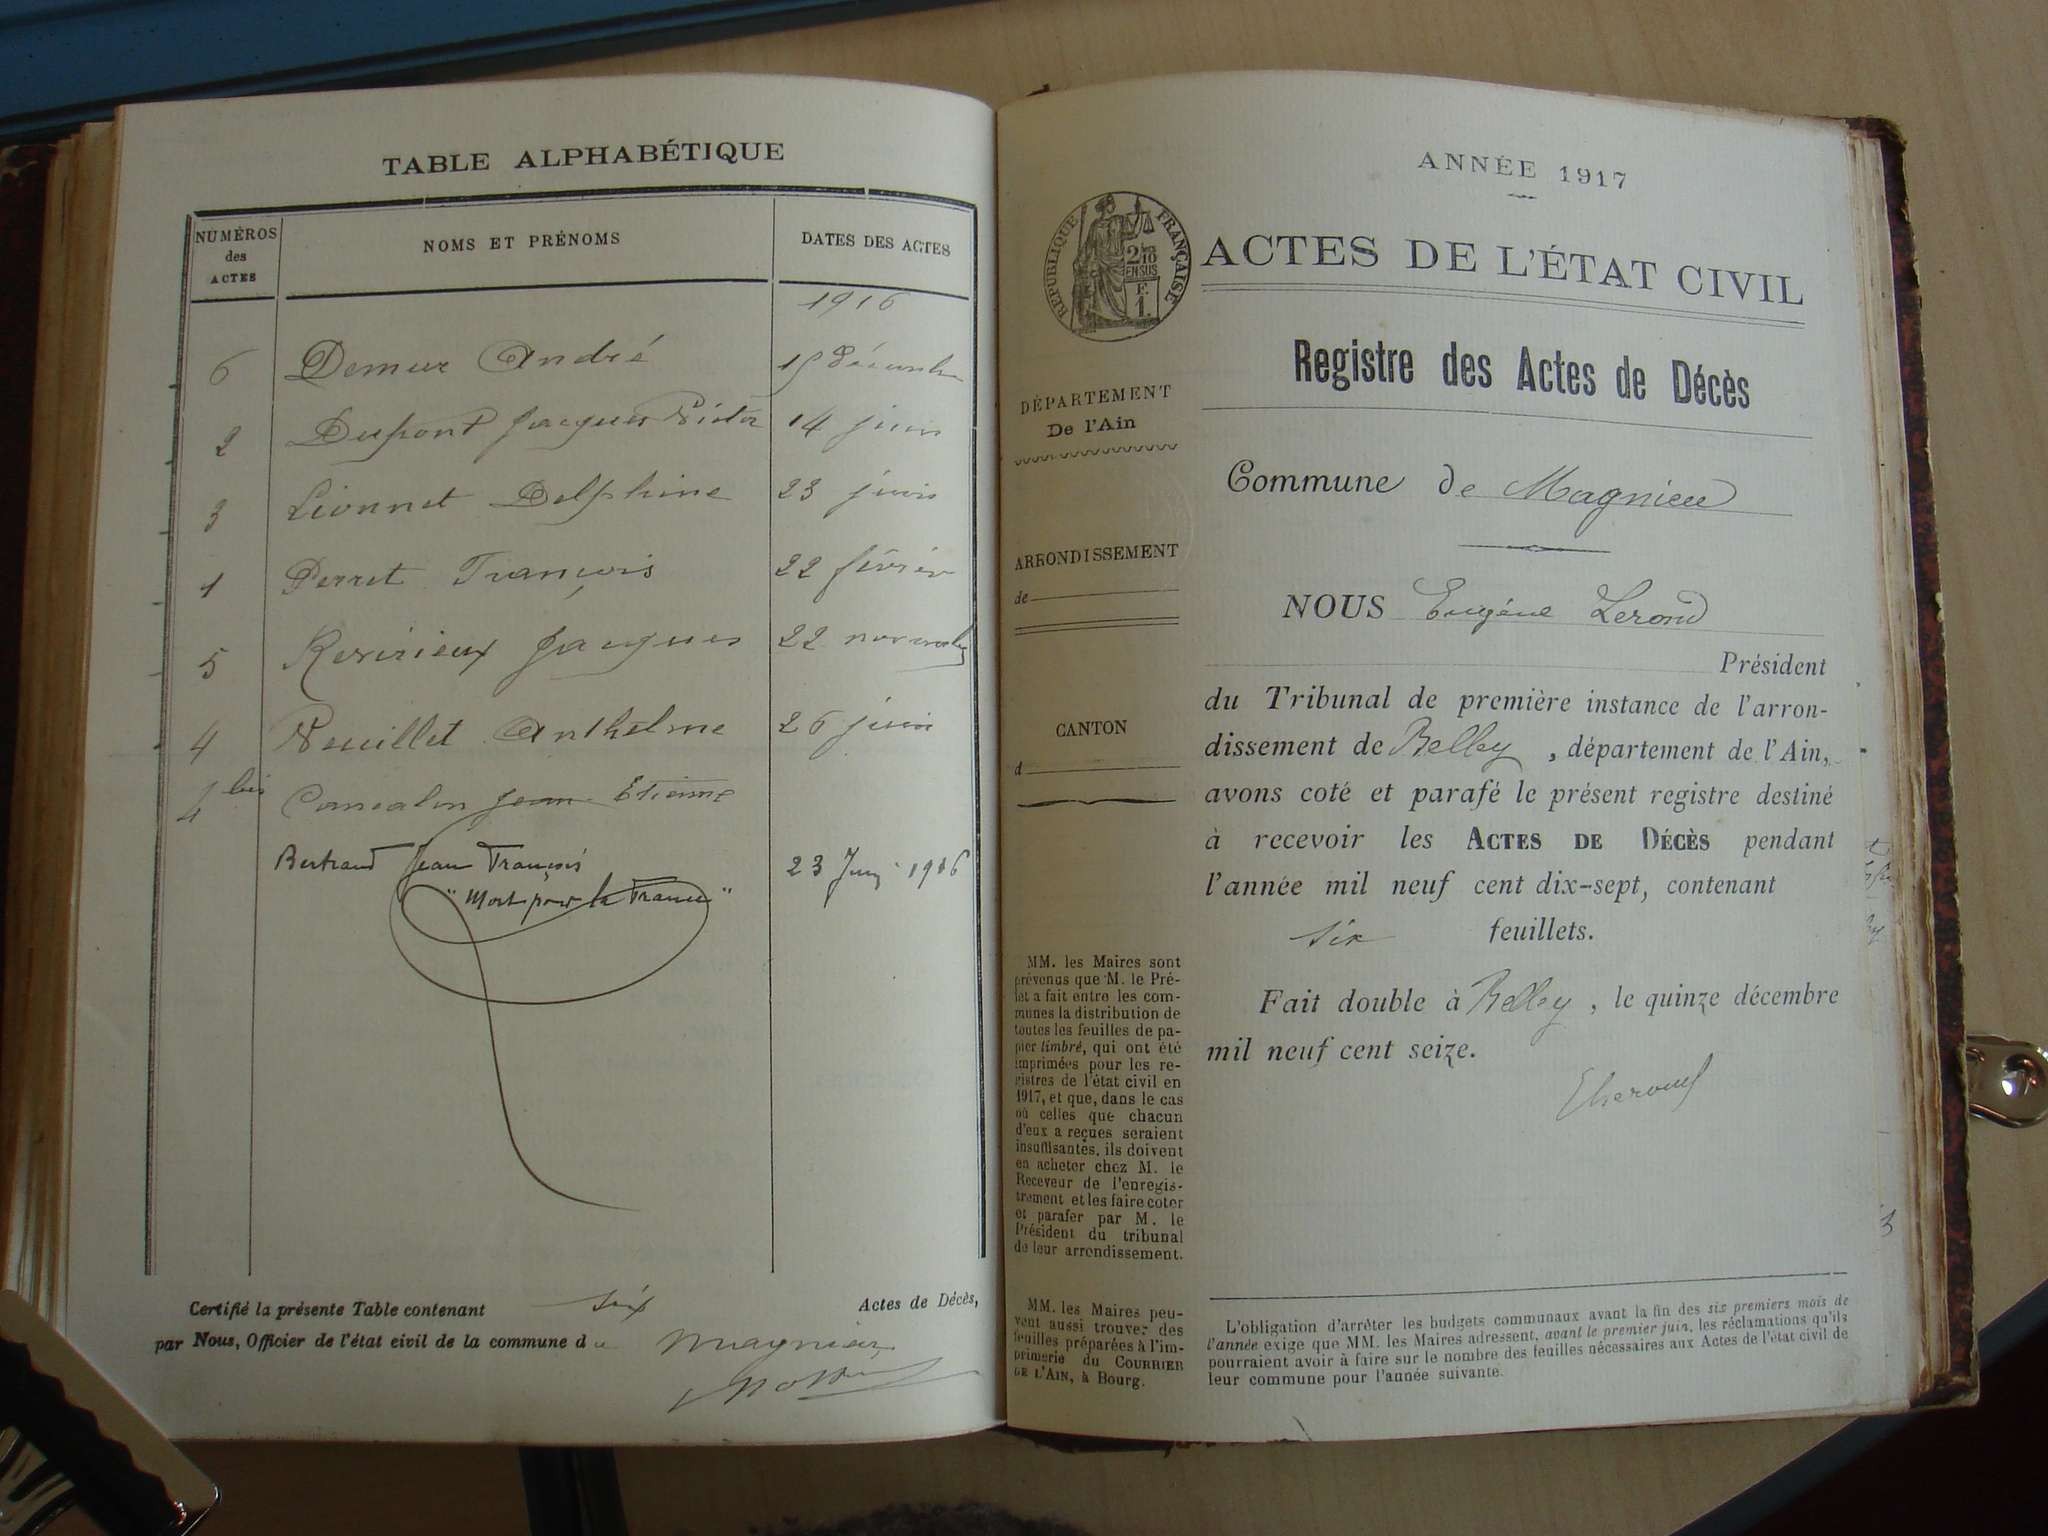 TABLE ALPHABÉTIQUE
NUMÉROS des ACTES
NOMS ET PRÉNOMS
DATES DES ACTES
1916
6 Demur André 19 décembre
2 Dupont Jacques Victor 14 juin
3 Lionnet Delphine 23 juin
1 Perret François 22 février
5 Revirieux Jacques 22 novembre
4 Veuillet Anthelme 26 juin
4 bis Jean Etienne
Bertrand Jean François 23 1916
"Mort pour la France"
Certifié la présente Table contenant six Actes de Décès,
par Nous, Officier de l'état civil de la commune de Magnieu
ANNÉE 1917
RÉPUBLIQUE FRANÇAISE
2/10
EN SUS
F.
1.
ACTES DE L'ÉTAT CIVIL
Registre des Actes de Décès
DÉPARTEMENT
De l'Ain
ARRONDISSEMENT
de
CANTON
d
MM. les Maires sont
prévenus que M. le Pré-
fet a fait entre les com-
munes la distribution de
toutes les feuilles de pa-
pier timbré, qui ont été
imprimées pour les re-
gistres de l'état civil en
1917, et que, dans le cas
où celles que chacun
d'eux a reçues seraient
insuffisantes, ils doivent
en acheter chez M. le
Receveur de l'enregis-
trement et les faire coter
et parafer par M. le
Président du tribunal
de leur arrondissement.
MM. les Maires peu-
vent aussi trouver des
feuilles préparées à l'im-
primerie du COURRIER
DE L'AIN, à Bourg.
Commune de Magnieu
NOUS Eugène Lerond
Président
du Tribunal de première instance de l'arron-
dissement de Belley, département de l'Ain,
avons coté et parafé le présent registre destiné
à recevoir les ACTES DE DÉCÈS pendant
l'année mil neuf cent dix-sept, contenant
six feuillets.
Fait double à Belley, le quinze décembre
mil neuf cent seize.
L'obligation d'arrêter les budgets communaux avant la fin des six premiers mois de
l'année exige que MM. les Maires adressent, avant le premier juin, les réclamations qu'ils
pourraient avoir à faire sur le nombre des feuilles nécessaires aux Actes de l'état civil de
leur commune pour l'année suivante.